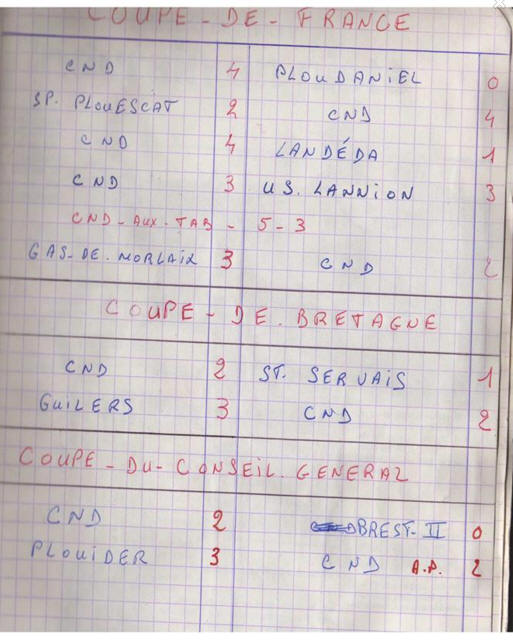 COUPE - DE - FRANCE
CND 4 PLOUDANIEL 0
SP. PLOUESCAT 2 CND 4
CND 4 LANDÉDA 1
CND 3 U.S. LANNION 3
CND - AUX - TAB - 5 - 3
GAS. DE. MORLAIX 3 CND 2
COUPE - DE. BRETAGNE
CND 2 ST. SERVAIS 1
GUILERS 3 CND 2
COUPE - DU - CONSEIL. GENERAL
CND 2 BREST. II 0
PLOUIDER 3 CND A.P. 2